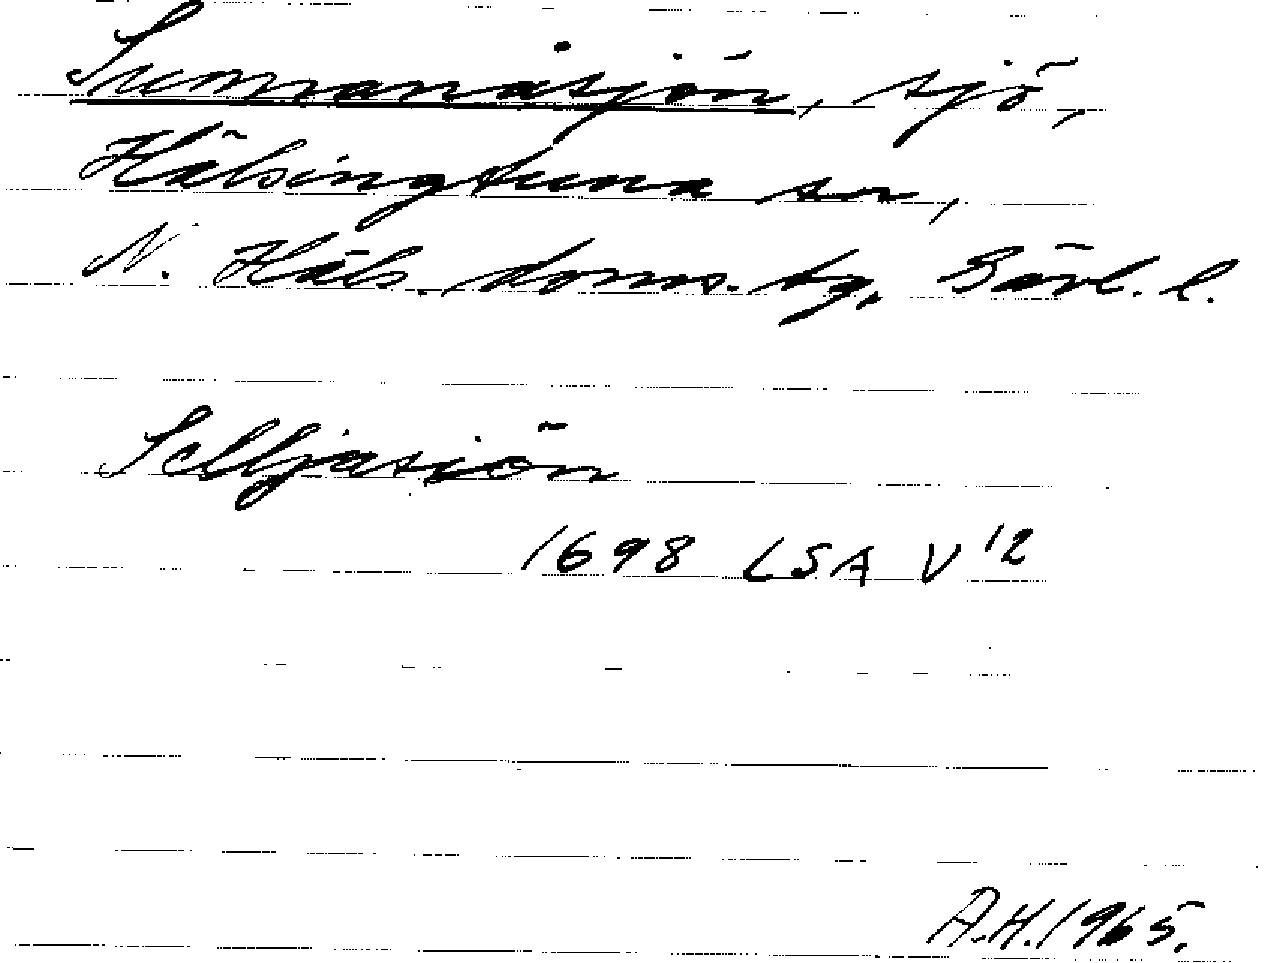 Sunnanåsjön, sjö,
Hälsingtuna sn,
N. Häls. doms. tg, Gävl. l.
Selljasiön
1698 LSA V 12
A.H. 1965.